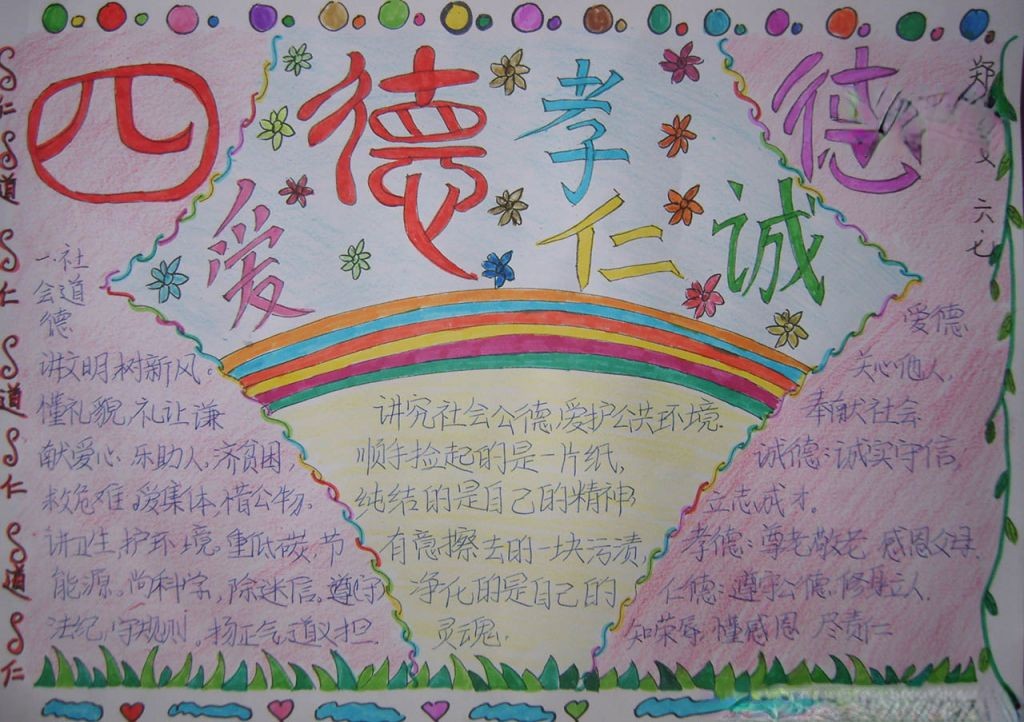 四德
孝
德
爱
仁
诚
六.七
仁
道
仁
道
仁
道
仁
一.社
会道
德
讲文明树新风。
懂礼貌,礼让谦
献爱心.乐助人,济贫困,
救危难.爱集体.惜公物.
讲卫生护环境.重低碳,节
能源。尚科学,除迷信。遵守
法纪,守规则。扬正气,道义担.
讲究社会公德,爱护公共环境.
顺手捡起的是一片纸,
纯结的是自己的精神
有意擦去的一块污渍,
净化的是自己的
灵魂.
爱德:
关心他人,
奉献社会.
诚德:诚实守信,
立志成才。
孝德:尊老敬老 感恩父母.
仁德:遵守公德.修身立人.
知荣辱,懂感恩 尽责仁